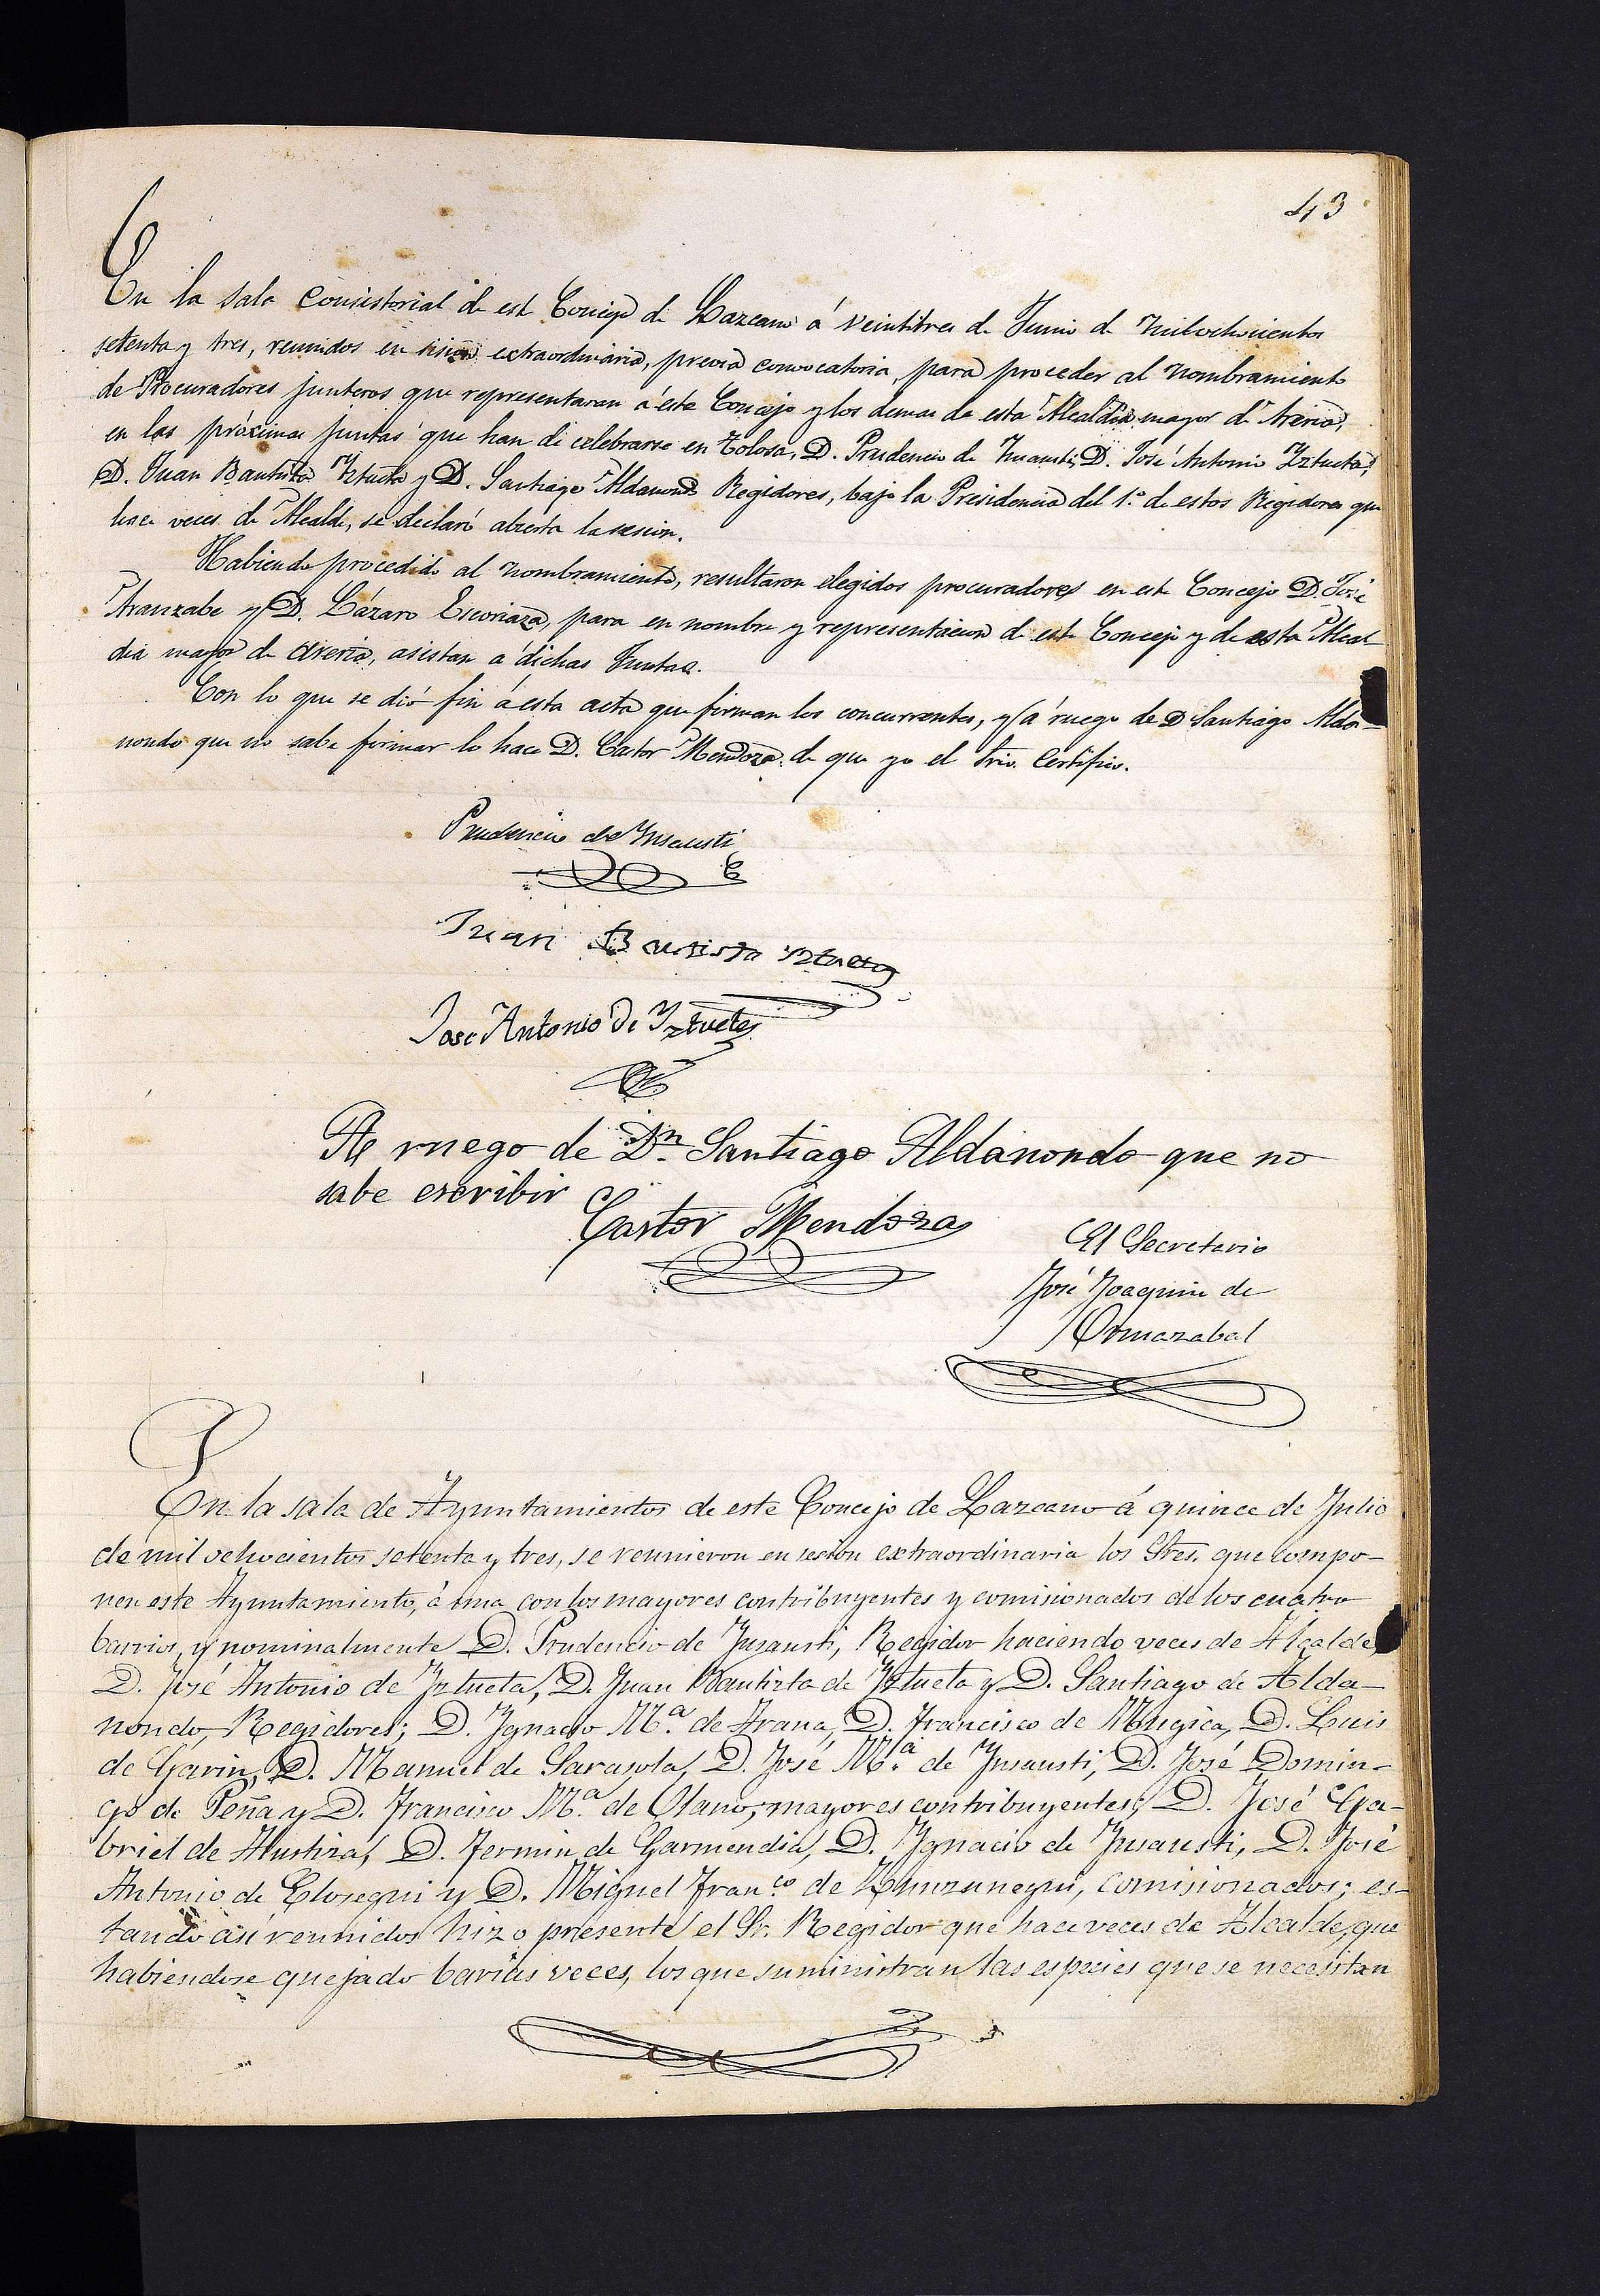 43
En la sala Consistorial de este Concejo de Lazcano á veintitres de Junio de mil ochocientos
setenta y tres, reunidos en sesion extraordinaria, previa convocatoria, para proceder al nombramiento
de Procuradores junteros que representaran á este Concejo y los demas de esta Alcaldia mayor de Areria,
en las próximas juntas que han de celebrarse en Tolosa, D. Prudencio de Insausti, D. José Antonio Yztueta,
D. Juan Bautista Yztueta y D. Santiago Aldanondo Regidores, bajo la Presidencia del 1.º de estos Regidores que
hace veces de Alcalde, se declaró abierta la sesion.
Habiendo procedido al nombramiento, resultaron elegidos procuradores en este Concejo D. José
Aranzabe y D. Lázaro Escoriaza, para en nombre y representacion de este Concejo y de esta Alcal
dia mayor de Areria, asistan á dichas Juntas.
Con lo que se dió fin á esta acta que firman los concurrentes, y á ruego de D Santiago Alda-
nondo que no sabe firmar lo hace D. Castor Mendoza, de que yo el Srio. Certifico.
Prudencio de Ynsausti
Juan Bautista Yztueta
Jose Antonio de Yztueta
A ruego de Dn. Santiago Aldanondo que no
sabe escribir
Castor Mendoza
El Secretario
José Joaquin de
Ormazabal
En la sala de Ayuntamientos de este Concejo de Lazcano á quince de Julio
de mil ochocientos setenta y tres, se reunieron en sesion extraordinaria los Sres. que compo-
nen este Ayuntamiento, á una con los mayores contribuyentes y comisionados de los cuatro
barrios, y nominalmente D. Prudencio de Ynsausti, Regidor haciendo veces de Alcalde,
D. José Antonio de Yztueta, D. Juan Bautista de Yztueta y D. Santiago de Alda-
nondo, Regidores; D. Ygnacio M.ª de Arana, D. Francisco de Mugica, D. Luis
de Garin, D. Manuel de Sarasola, D. José M.ª de Ynsausti, D. José Domin-
go de Peña y D. Francisco M.ª de Olano, mayores contribuyentes; D. José Ga-
briel de Austiza, D. Fermin de Garmendia, D. Ygnacio de Ynsausti, D. José
Antonio de Elosegui y D. Miguel Fran.co de comisionados; es-
tando asi reunidos hizo presente el Sr. Regidor que hace veces de Alcalde, que
habiendose quejado barias veces, los que suministran las especies que se necesitan